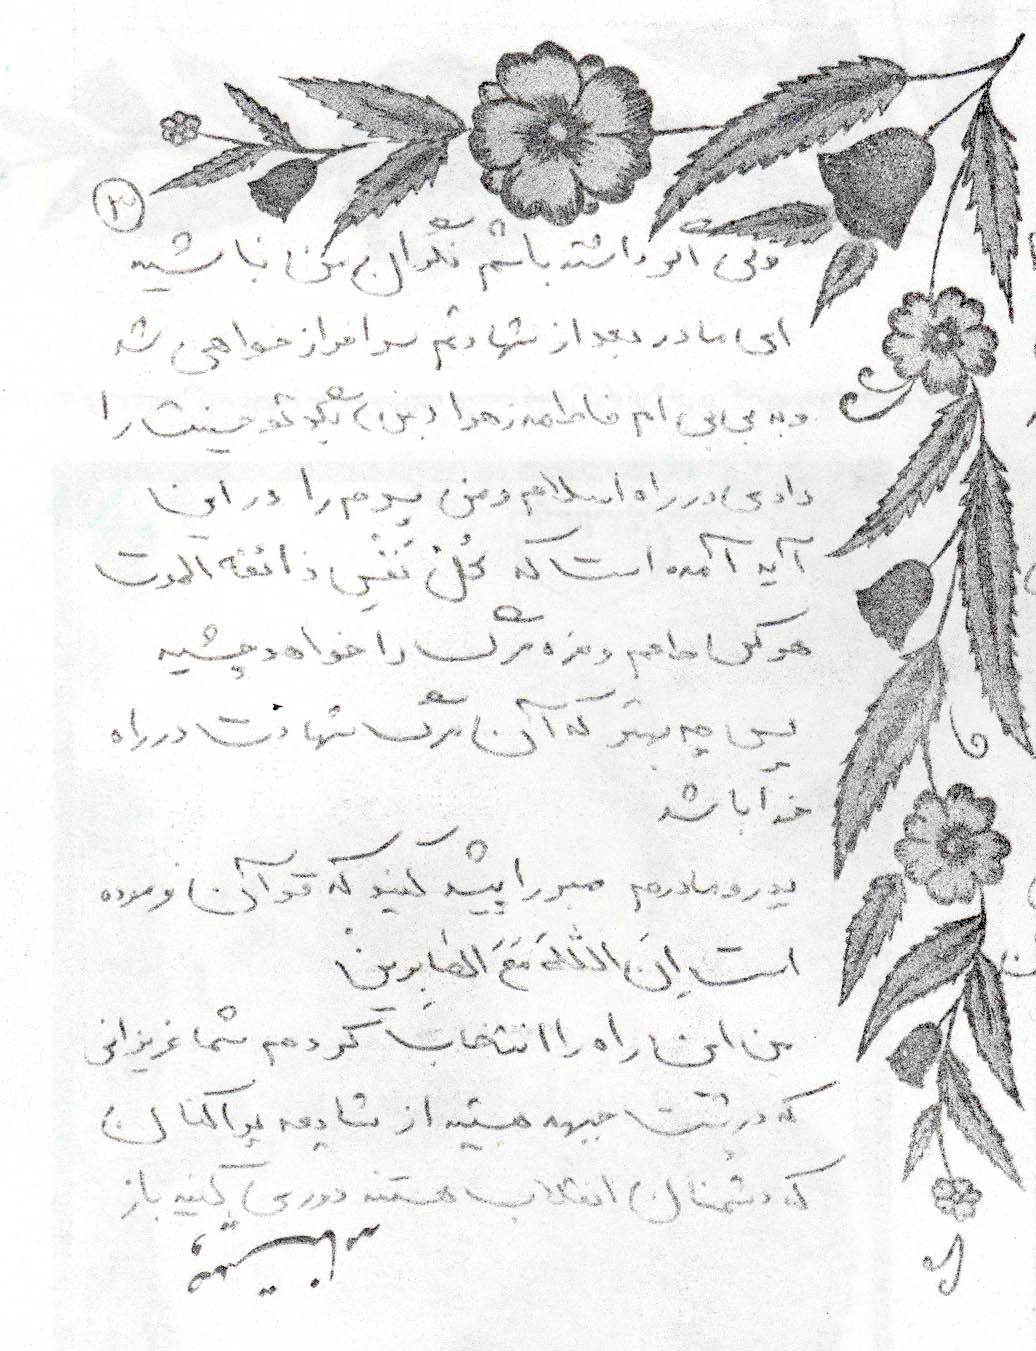 ۳
وقتی اثر داشته باشم نگران من نباشید
ای مادر بعد از شهادتم سرافراز خواهی شد
و به بی بی ام فاطمه زهرا (س) بگو تو حسینت را
دادی در راه اسلام و من پسرم را در این
آیه آمده است که کُلُّ نَفْسٍ ذائقه الموت
هرکس طعم و مزه مرگ را خواهد چشید
پس چه بهتر که آن مرگ شهادت در راه
خدا باشد
پدر و مادرم صبر را پیشه کنید که قرآن فرموده
است اِنَ اللّهَ مَعَ الصّابِرینْ
من این راه را انتخاب کردم شما عزیزانی
که در پشت جبهه هستید از شایعه پراکنان
که دشمنان انقلاب هستند دوری کنید باز